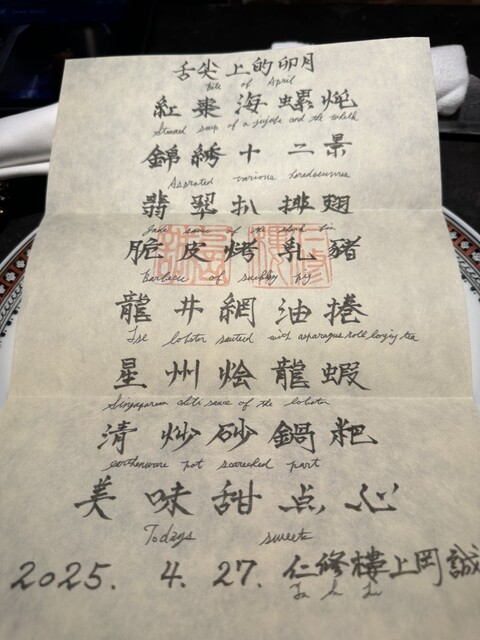 舌尖上的卯月
Bite of April
紅棗海螺炖
Steamed soup of a jujube and the whelk
錦綉十二景
Assorted various horsdoeuvres
翡翠扒排翅
Jade sauce of the shark fin
脆皮烤乳豬
Barbecue of suckling pig
龍井網油捲
The lobster sauted with asparagus roll longjing tea
星州烩龍蝦
Singaporean chili sauce of the lobster
清炒砂鍋粑
earthenware pot part
美味甜点心
Todays sweets
2025. 4. 27. 仁修樓上岡誠